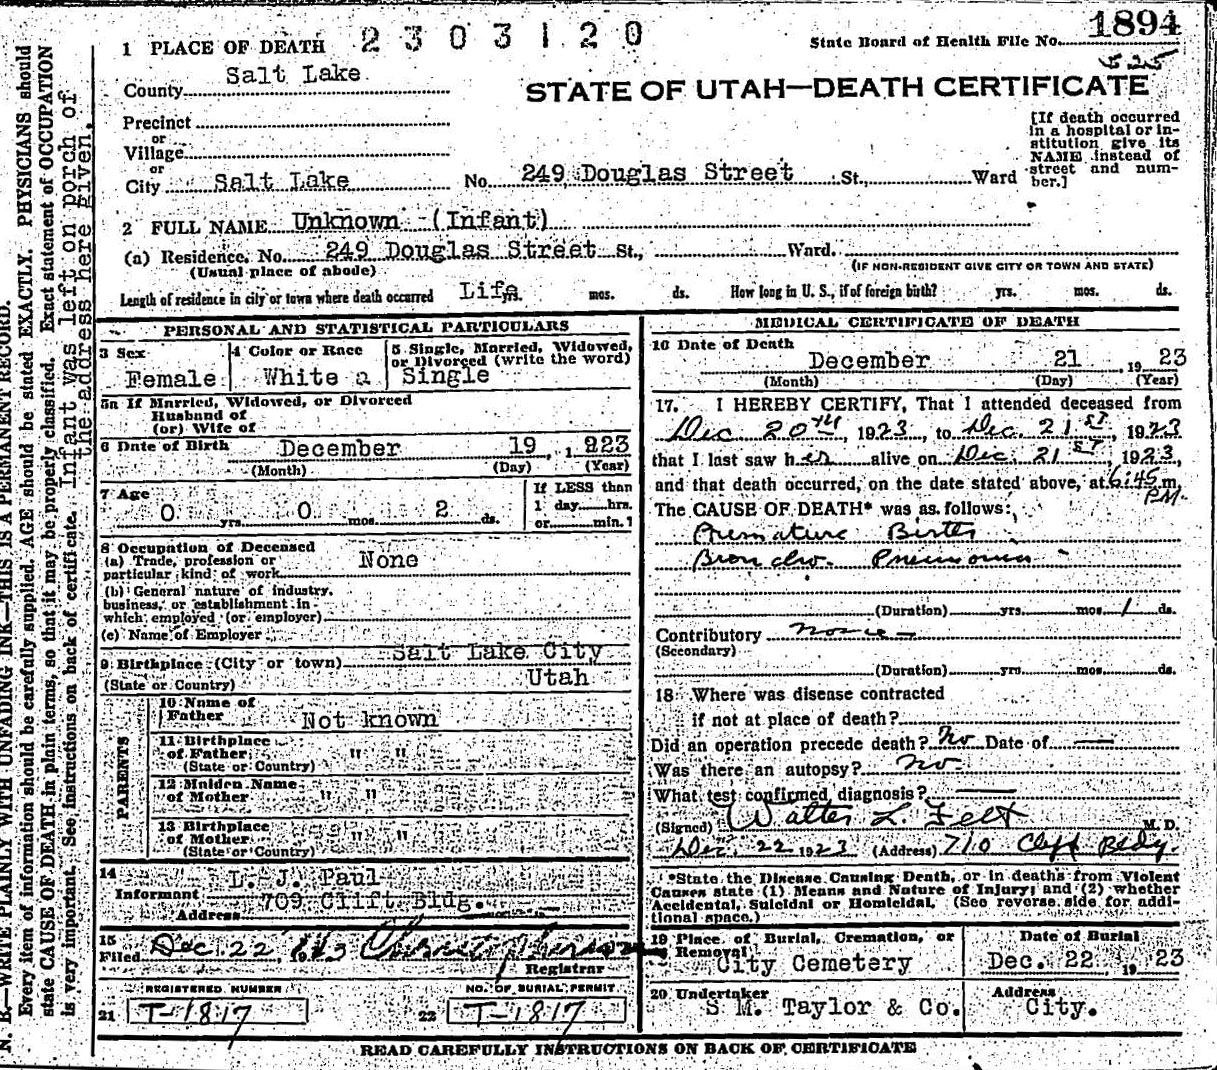 1 PLACE OF DEATH 2303120
State Board of Health File No. 1894
525
County Salt Lake
STATE OF UTAH—DEATH CERTIFICATE
Precinct
or
Village
or
City Salt Lake No. 249 Douglas Street St., Ward
[If death occurred
in a hospital or in-
stitution give its
NAME instead of
street and num-
ber.]
2 FULL NAME Unknown (Infant)
(a) Residence. No. 249 Douglas Street St., Ward.
(Usual place of abode) (IF NON-RESIDENT GIVE CITY OR TOWN AND STATE)
Length of residence in city or town where death occurred Life yrs. mos. ds. How long in U. S., if of foreign birth? yrs. mos. ds.
PERSONAL AND STATISTICAL PARTICULARS
3 Sex Female
4 Color or Race White a
5 Single, Married, Widowed,
or Divorced (write the word)
Single
5a If Married, Widowed, or Divorced
Husband of
(or) Wife of
6 Date of Birth December 19, 1923
(Month) (Day) (Year)
7 Age 0 yrs. 0 mos. 2 ds.
If LESS than
1 day hrs.
or min.?
8 Occupation of Deceased
(a) Trade, profession or
particular kind of work None
(b) General nature of industry,
business, or establishment in
which employed (or employer)
(c) Name of Employer
9 Birthplace (City or town) Salt Lake City
(State or Country) Utah
PARENTS
10 Name of
Father Not known
11 Birthplace
of Father " "
(State or Country)
12 Maiden Name
of Mother " "
13 Birthplace
of Mother " "
(State or Country)
14
Informant L. J. Paul
Address 709 Clift Bldg.
15
Filed Dec. 22, 1923
Registrar
REGISTERED NUMBER
21 T-1817
NO. OF BURIAL PERMIT
22 T-1817
MEDICAL CERTIFICATE OF DEATH
16 Date of Death
December 21, 1923
(Month) (Day) (Year)
17. I HEREBY CERTIFY, That I attended deceased from
Dec 20th, 1923, to Dec. 21st, 1923
that I last saw her alive on Dec. 21st, 1923,
and that death occurred, on the date stated above, at 6:45 m.
P.M.
The CAUSE OF DEATH* was as follows:
Premature Birth
Broncho. Pneumonia
(Duration) yrs. mos. 1 ds.
Contributory none
(Secondary)
(Duration) yrs. mos. ds.
18 Where was disease contracted
if not at place of death?
Did an operation precede death? No Date of —
Was there an autopsy? No
What test confirmed diagnosis? —
(Signed) Walter L. Felt M. D.
Dec. 22 1923 (Address) 710 Clift Bldg.
*State the Disease Causing Death, or in deaths from Violent
Causes state (1) Means and Nature of Injury; and (2) whether
Accidental, Suicidal or Homicidal. (See reverse side for addi-
tional space.)
19 Place of Burial, Cremation, or
Removal City Cemetery
Date of Burial
Dec. 22 1923
20 Undertaker
S M. Taylor & Co.
Address
City.
READ CAREFULLY INSTRUCTIONS ON BACK OF CERTIFICATE
N. B.—WRITE PLAINLY WITH UNFADING INK—THIS IS A PERMANENT RECORD.
Every item of information should be carefully supplied. AGE should be stated EXACTLY. PHYSICIANS should
state CAUSE OF DEATH in plain terms, so that it may be properly classified. Exact statement of OCCUPATION
is very important. See instructions on back of certificate.
Infant was left on porch of
the address here given.